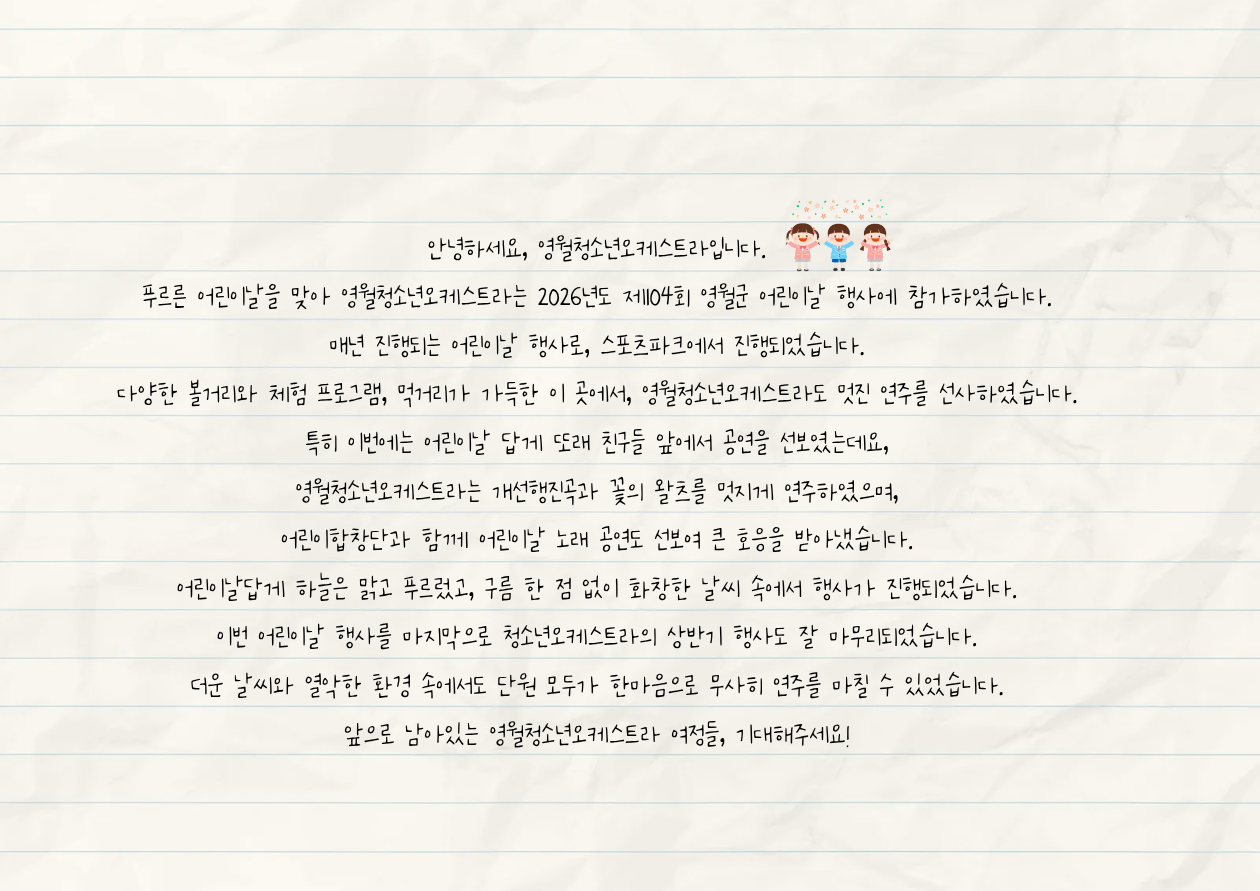 안녕하세요, 영월청소년오케스트라입니다.
푸르른 어린이날을 맞아 영월청소년오케스트라는 2026년도 제104회 영월군 어린이날 행사에 참가하였습니다.
매년 진행되는 어린이날 행사로, 스포츠파크에서 진행되었습니다.
다양한 볼거리와 체험 프로그램, 먹거리가 가득한 이 곳에서, 영월청소년오케스트라도 멋진 연주를 선사하였습니다.
특히 이번에는 어린이날 답게 또래 친구들 앞에서 공연을 선보였는데요,
영월청소년오케스트라는 개선행진곡과 꽃의 왈츠를 멋지게 연주하였으며,
어린이합창단과 함께 어린이날 노래 공연도 선보여 큰 호응을 받아냈습니다.
어린이날답게 하늘은 맑고 푸르렀고, 구름 한 점 없이 화창한 날씨 속에서 행사가 진행되었습니다.
이번 어린이날 행사를 마지막으로 청소년오케스트라의 상반기 행사도 잘 마무리되었습니다.
더운 날씨와 열악한 환경 속에서도 단원 모두가 한마음으로 무사히 연주를 마칠 수 있었습니다.
앞으로 남아있는 영월청소년오케스트라 여정들, 기대해주세요!